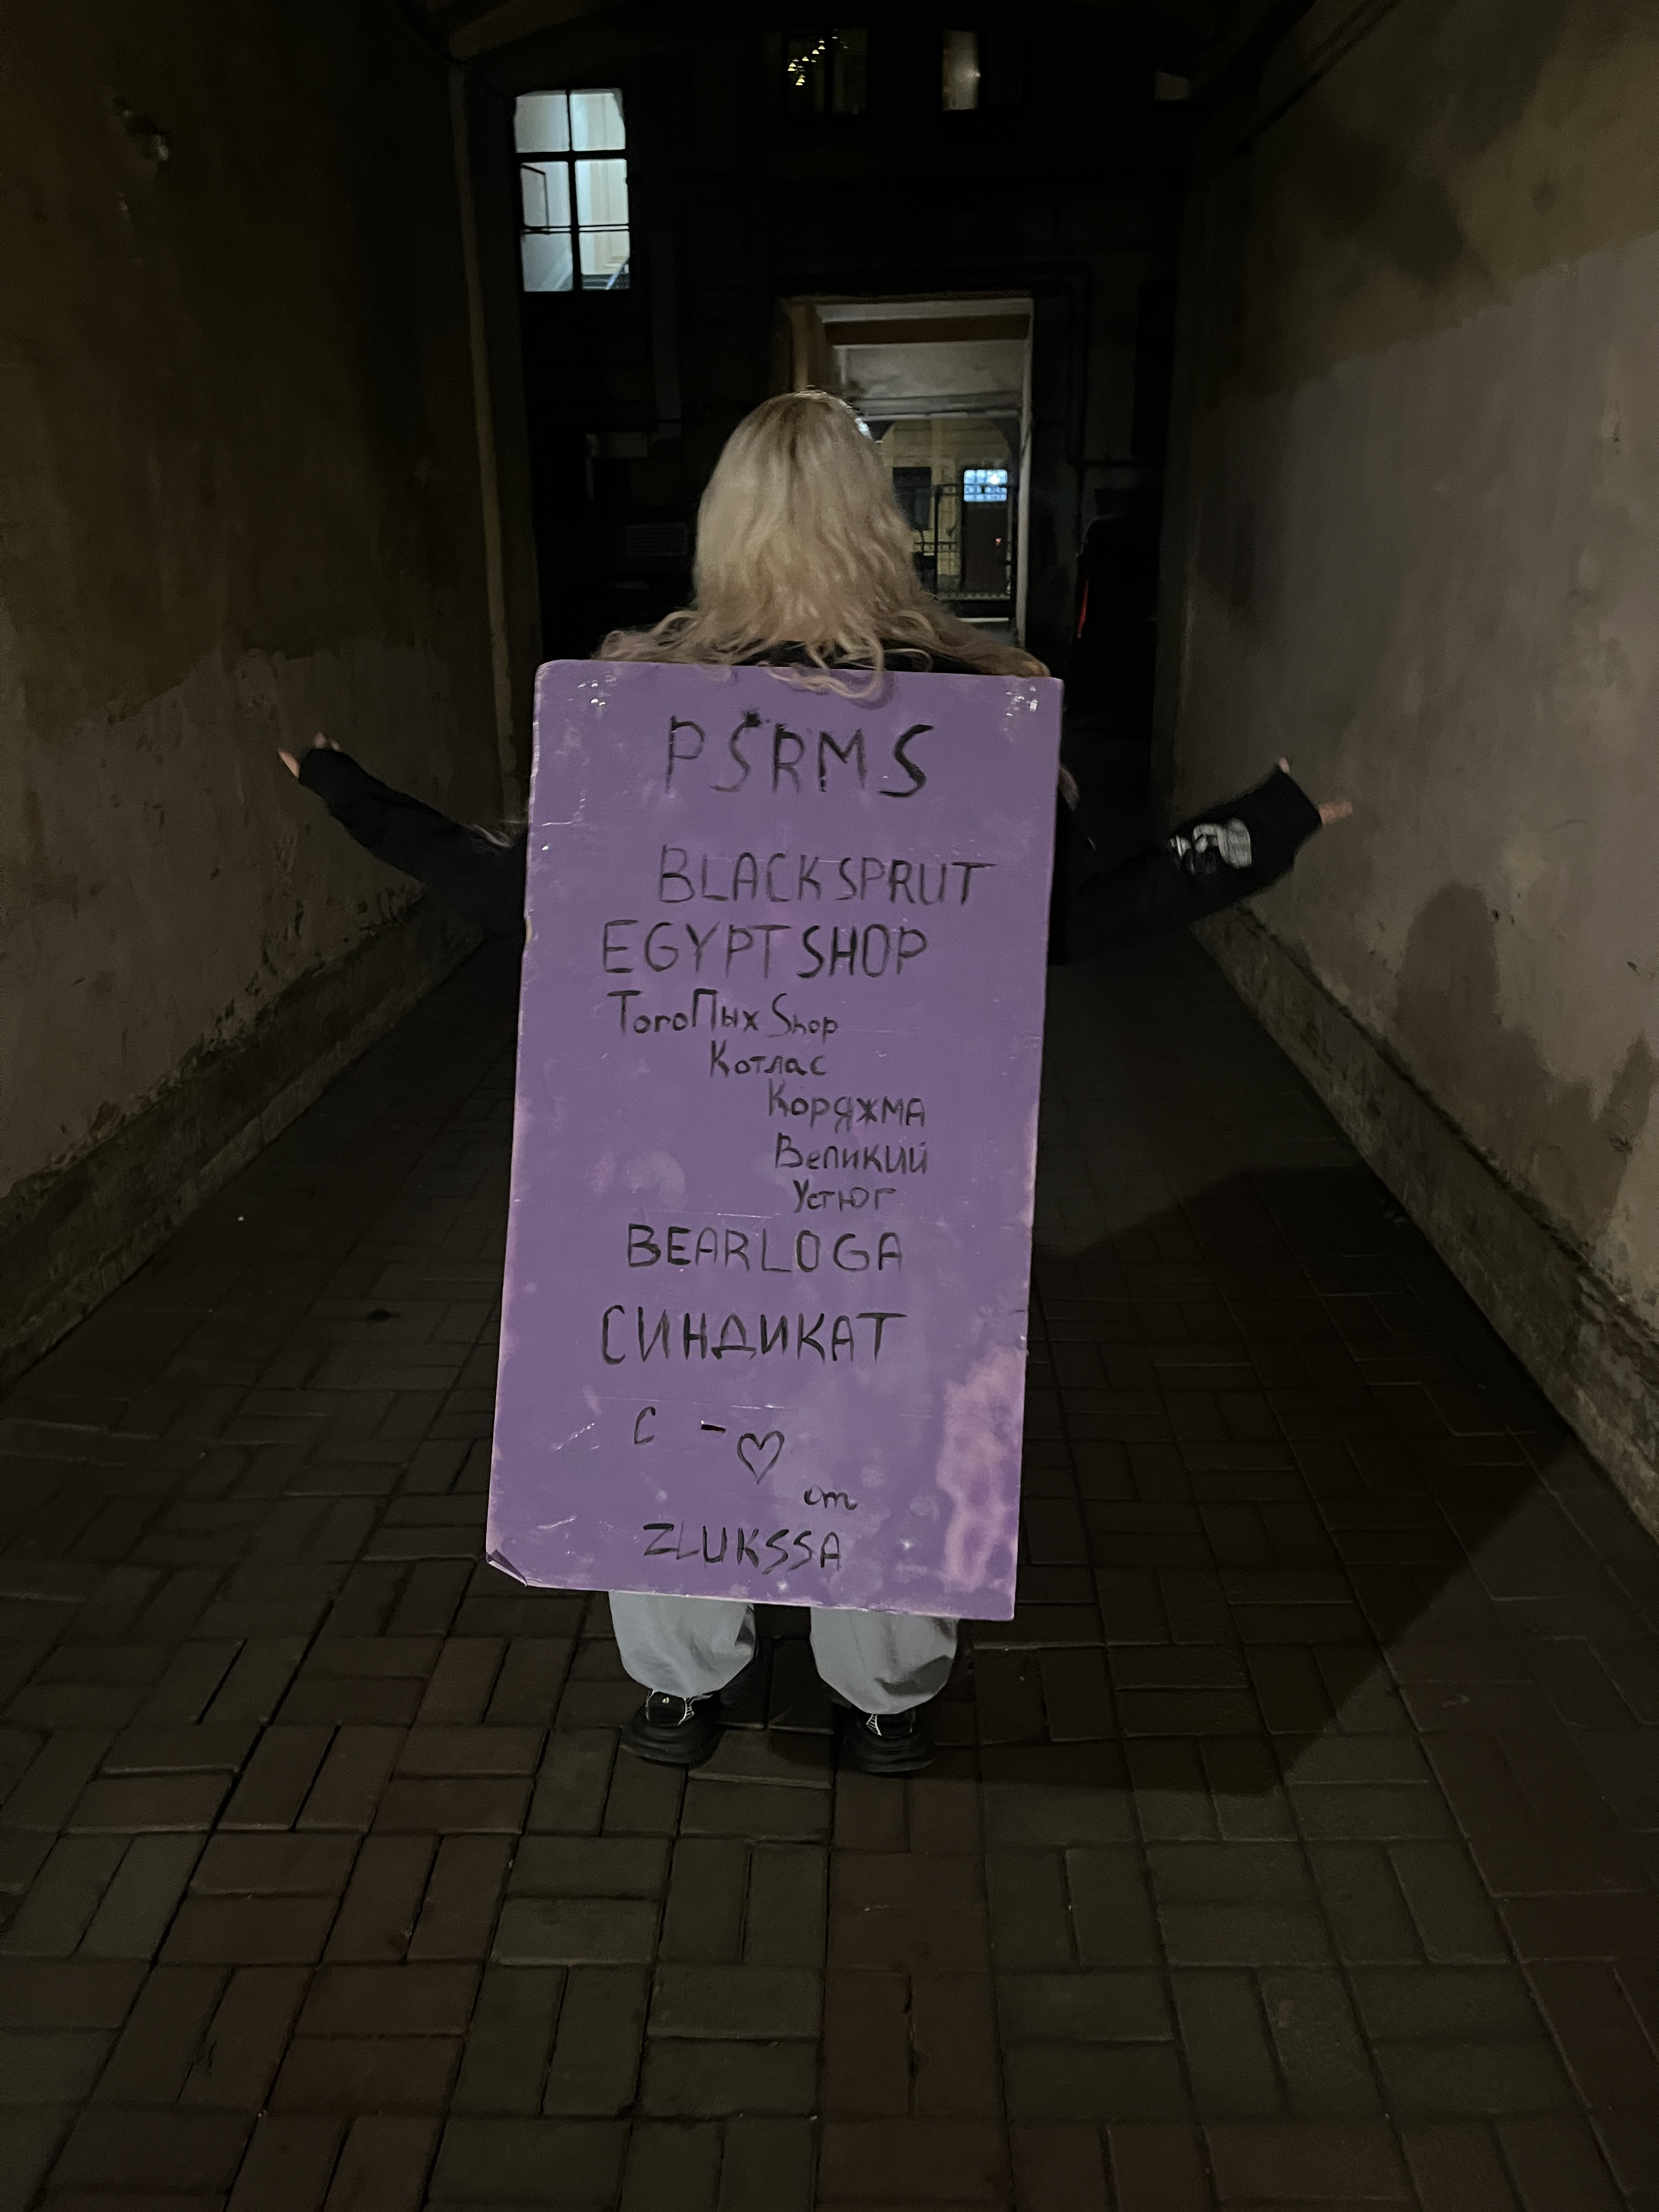 PSRMS
BLACKSPRUT
EGYPT SHOP
ТогоПых Shop
Котлас
Коряжма
Великий
Устюг
BEARLOGA
СИНДИКАТ
С -♡
от
ZLUKSSA